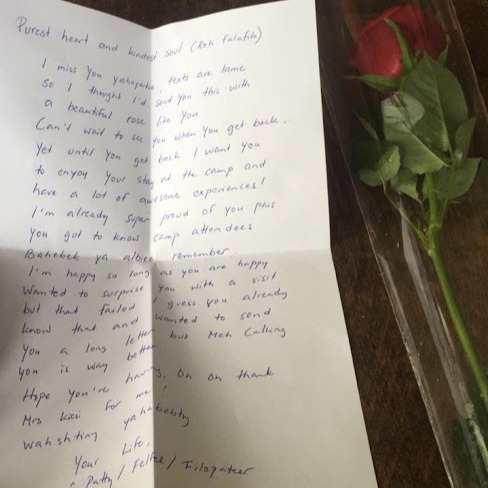 Purest heart and kindest soul (Roh falafilo)
I miss you yahayatee, texts are lame
so I thought I'd send you this with
a beautiful rose like you.
Can't wait to see you when you get back...
Yet until you get back I want you
to enjoy your stay at the camp and
have a lot of awesome experiences!
I'm already super proud of you plus
you got to know camp attendees
Bahebek ya albiee, remember
I'm happy so long as you are happy
Wanted to surprise you with a visit
but that failed I guess you already
know that and wanted to send
you a long letter but Meh Calling
you is way better
Hope you're having, On on thank
Mrs for me!
wahshtiny
Your Life,
Patty / / Filopateer